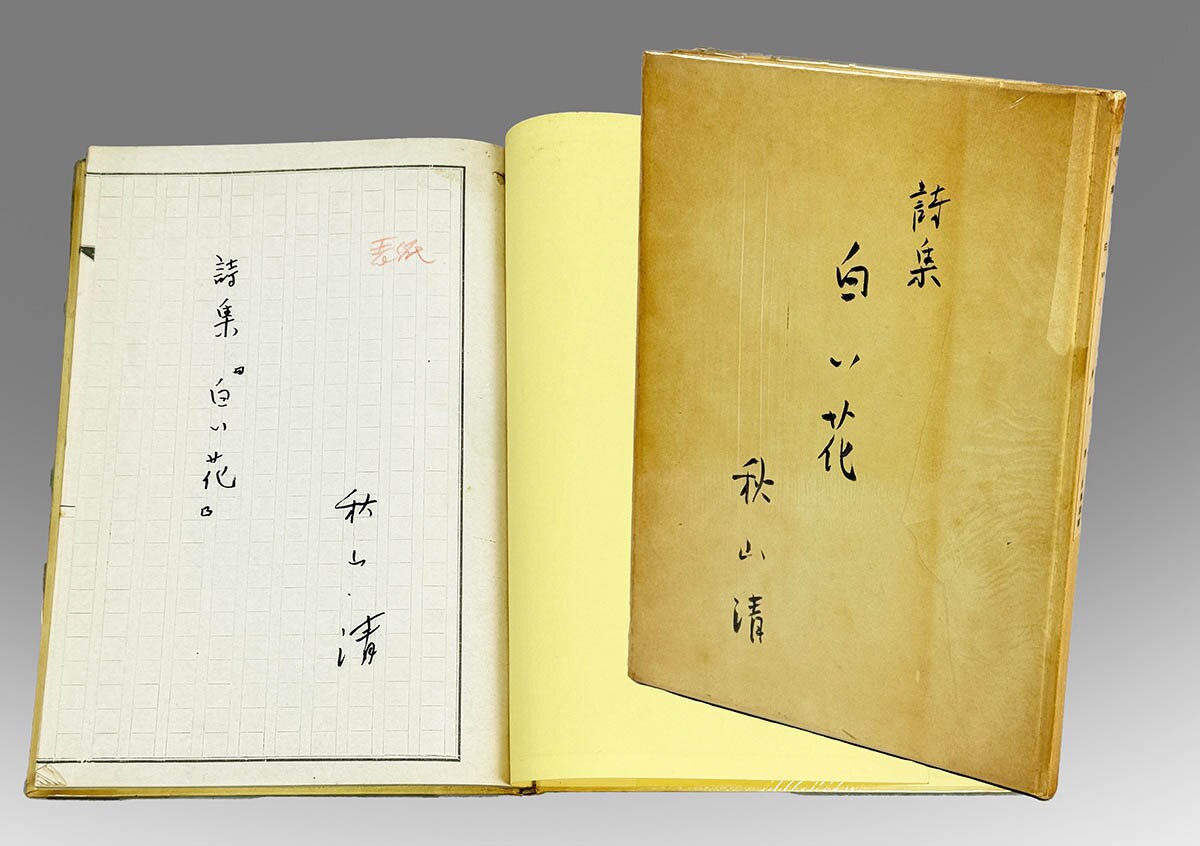 表紙
秋山清
詩集『白い花』
詩集
白い花
秋山清